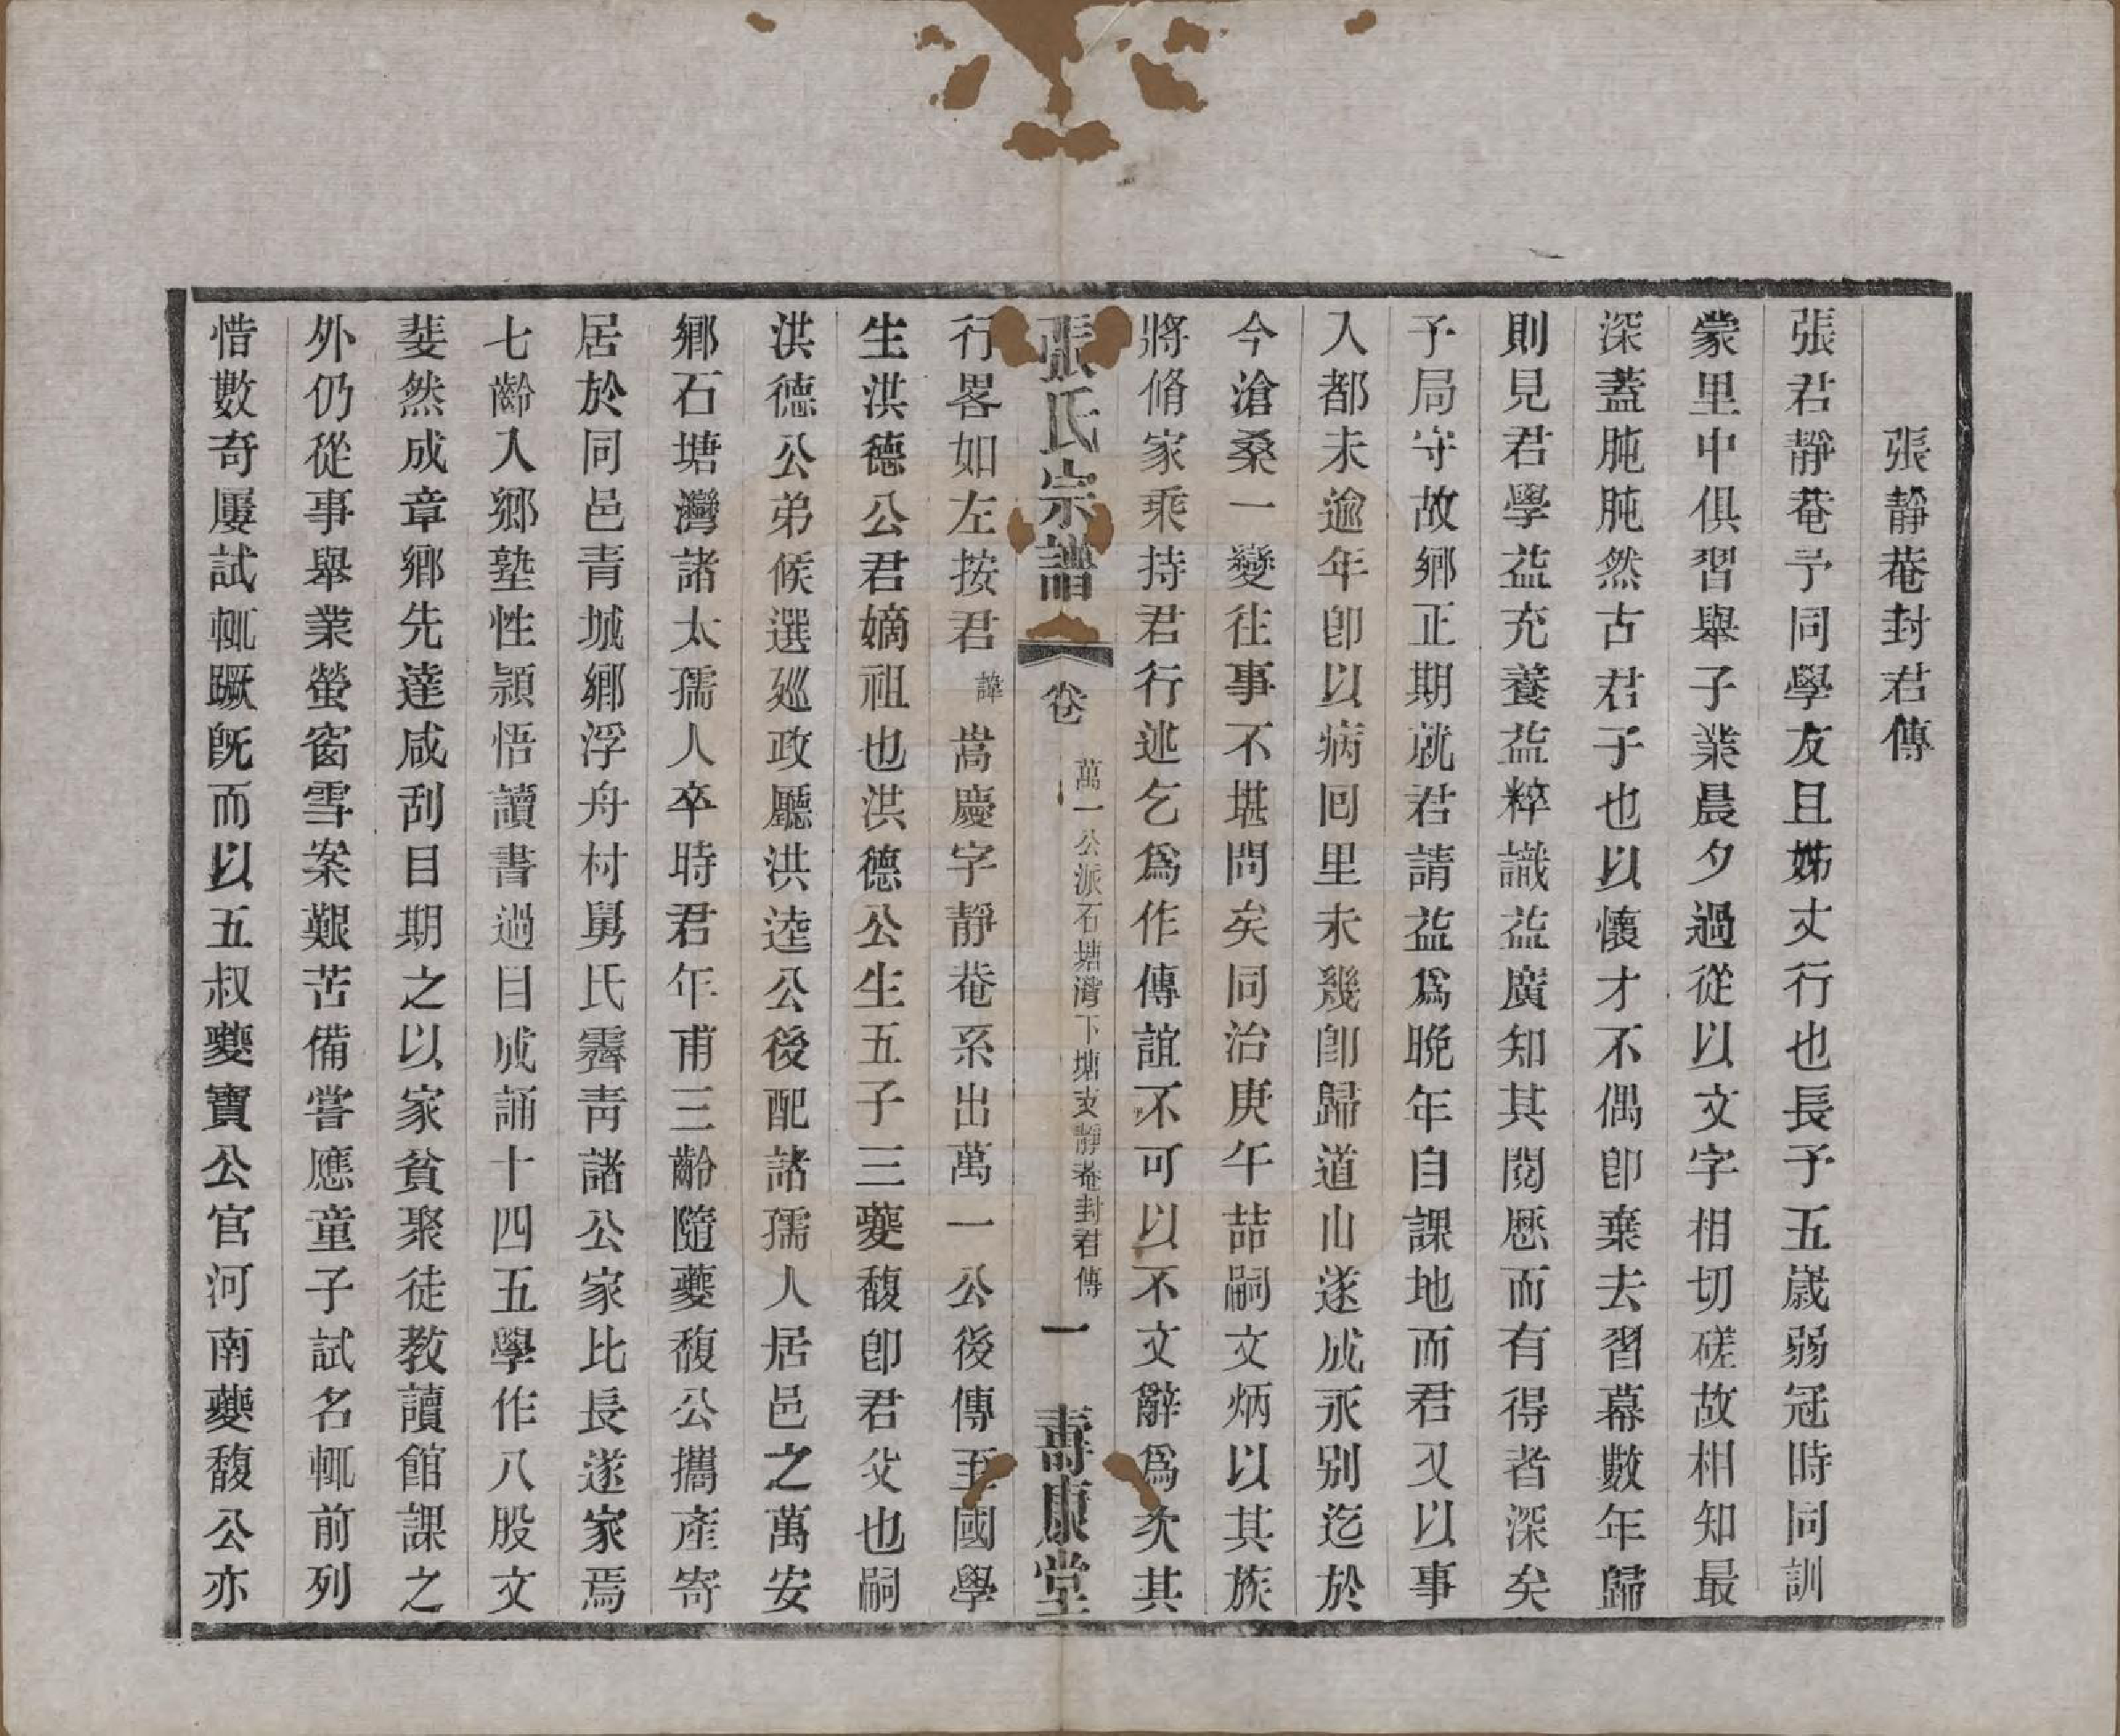 張靜菴封君傳
張君靜菴予同學友且姊丈行也長予五歲弱冠時同訓
蒙里中俱習舉子業晨夕過從以文字相切磋故相知最
深蓋肫肫然古君子也以懷才不偶卽棄去習幕數年歸
則見君學益充養益粹識益廣知其閱歷而有得者深矣
予局守故鄉正期就君請益爲晚年自課地而君又以事
入都未逾年卽以病回里未幾卽歸道山遂成永别迄於
今滄桑一變往事不堪問矣同治庚午喆嗣文炳以其族
將脩家乘持君行述乞爲作傳誼不可以不文辭爲次其
張氏宗譜
卷
萬一公派石塘灣下塘支靜菴封君傳
一
壽康堂
行畧如左按君諱嵩慶字靜菴系出萬一公後傳至國學
生洪德公君嫡祖也洪德公生五子三夔馥卽君父也嗣
洪德公弟候選廵政廳洪逵公後配諸孺人居邑之萬安
鄉石塘灣諸太孺人卒時君年甫三齡隨夔馥公攜產寄
居於同邑青城鄉浮舟村舅氏霽靑諸公家比長遂家焉
七齡入鄉塾性頴悟讀書過目成誦十四五學作八股文
斐然成章鄉先達咸刮目期之以家貧聚徒教讀館課之
外仍從事舉業螢窗雪案艱苦備嘗應童子試名輒前列
惜數奇屢試輒蹶旣而以五叔夔寶公官河南夔馥公亦